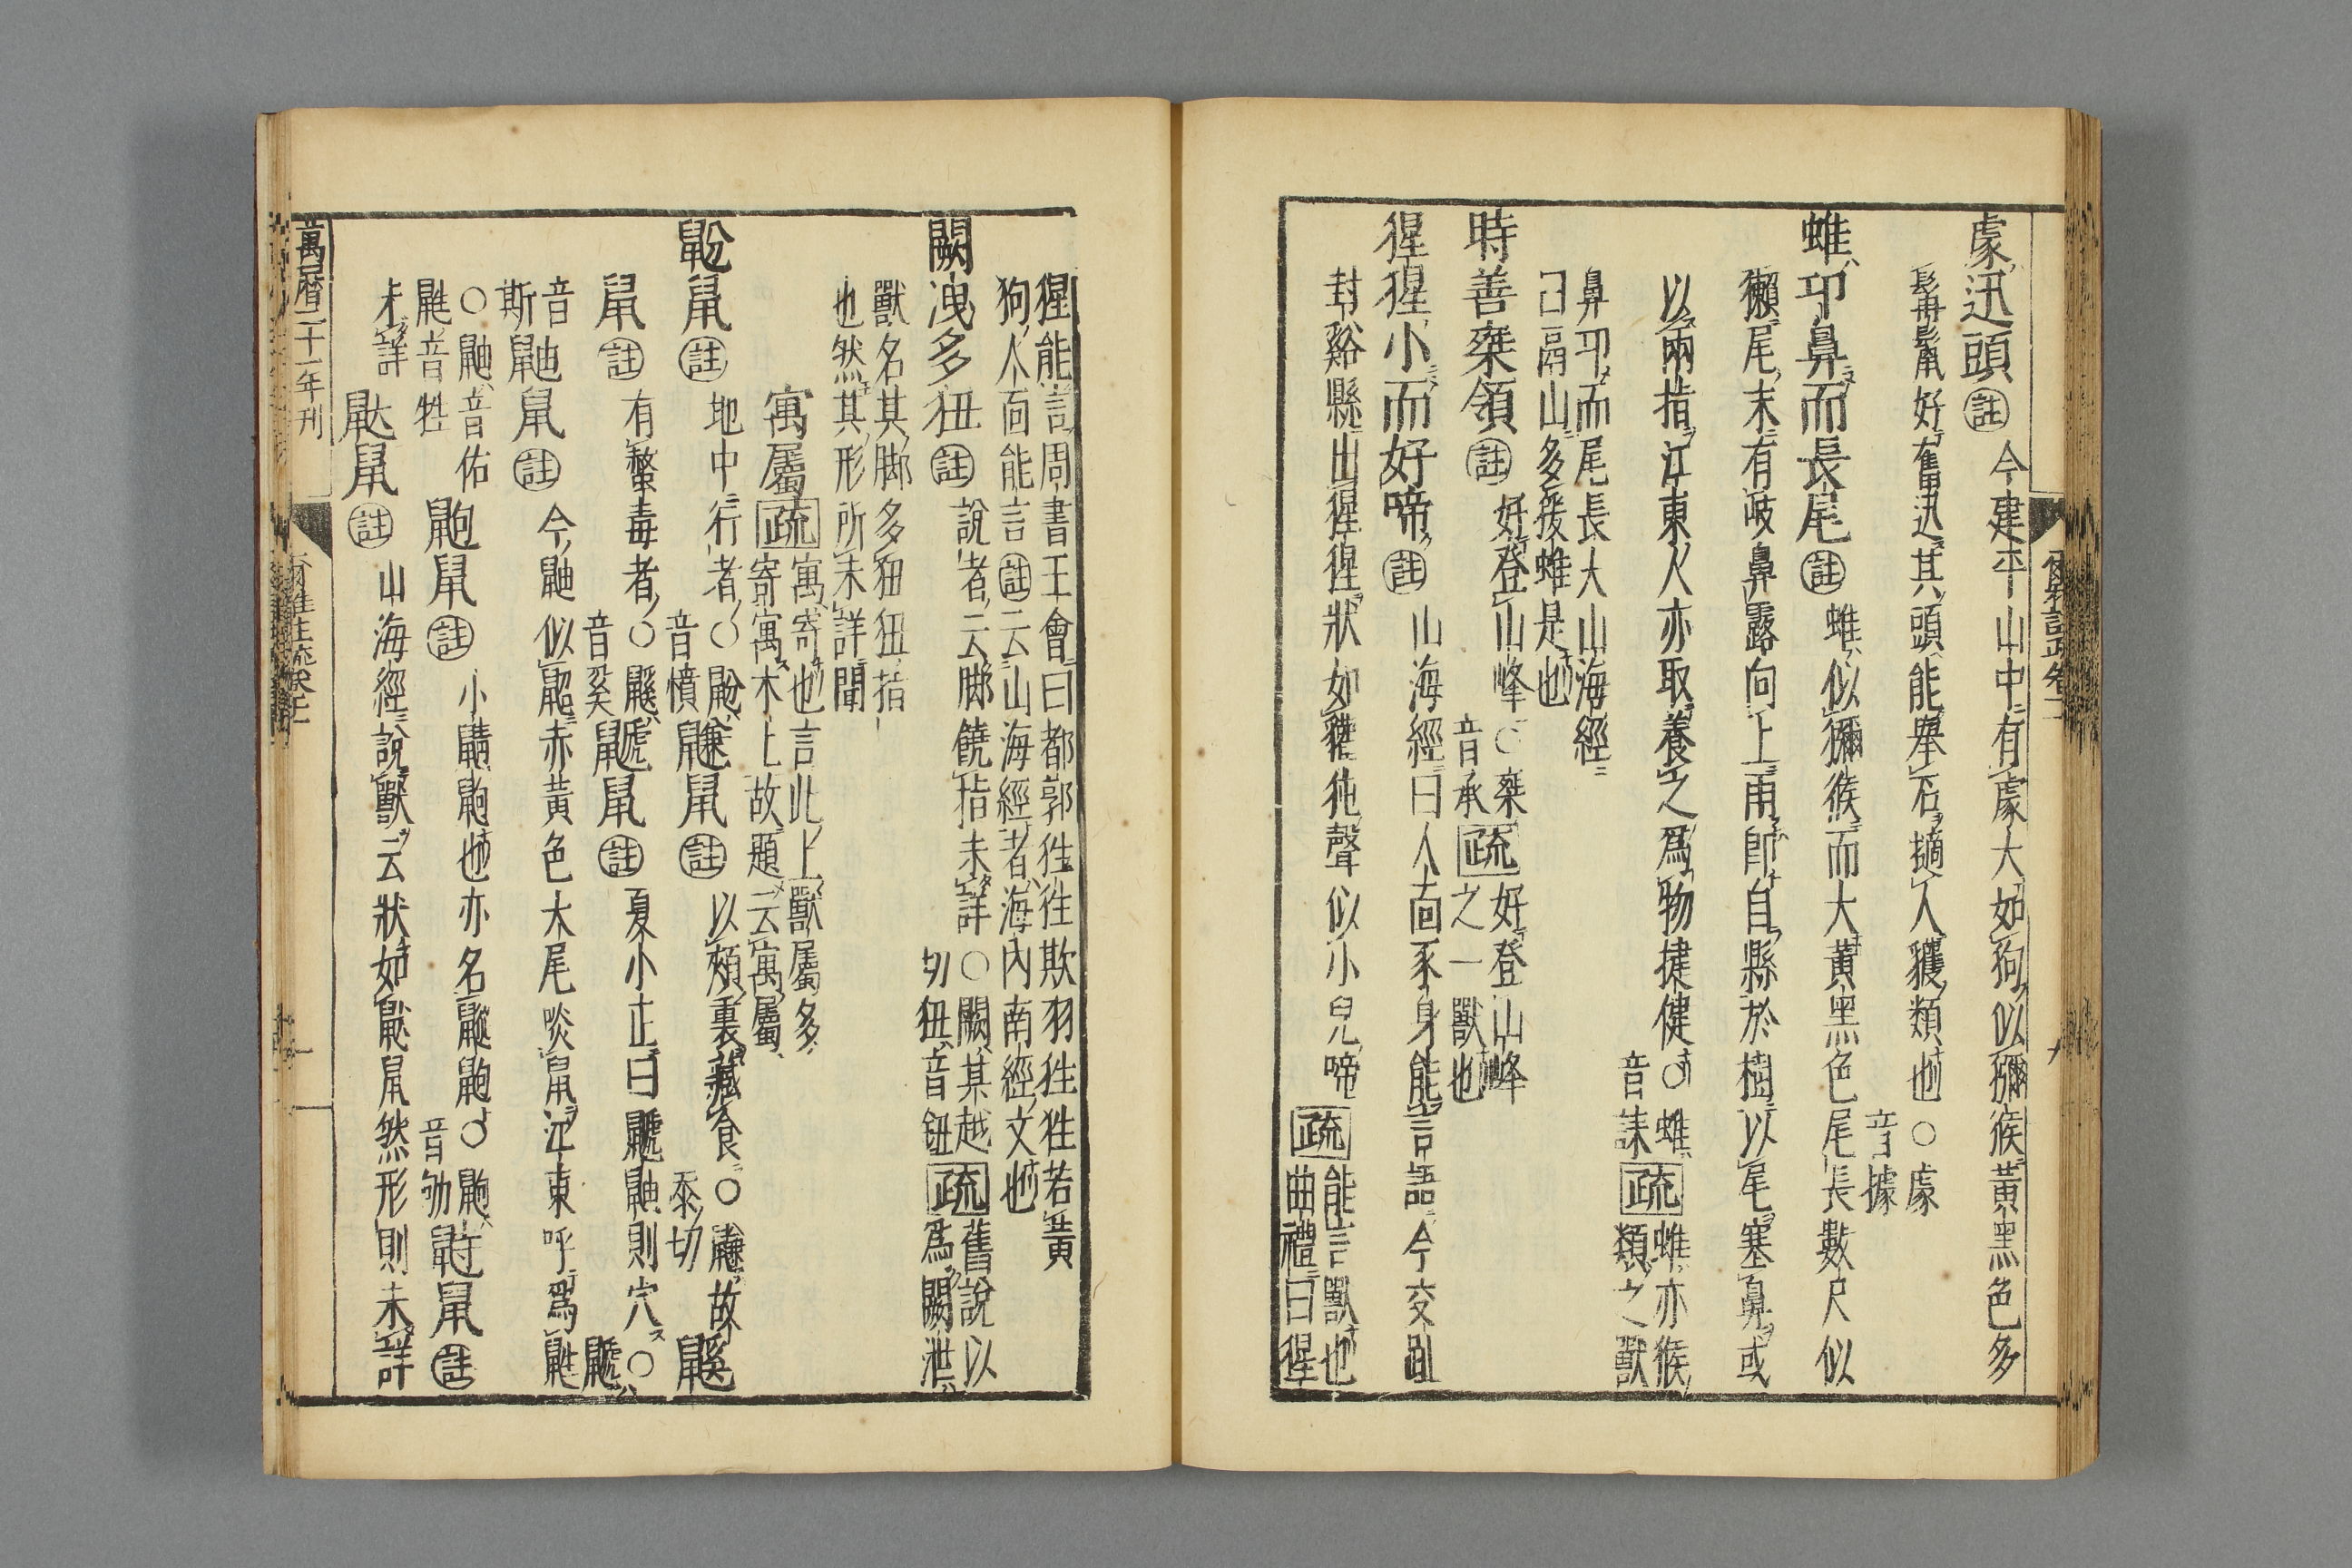 豦迅頭註今建平山中有豦大如狗似獼猴黃黑色多
髯鬣好奮迅其頭能舉石擿人玃類也○豦
音據
蜼卬鼻而長尾註蜼似獼猴而大黃黑色尾長數尺似
獺尾末有岐鼻露向上雨卽自縣於樹以尾塞鼻或
以兩指江東人亦取養之爲物捷健○蜼
音誄疏蜼亦猴
類之獸
鼻卬而尾長大山海經
曰鬲山多猨蜼是也
時善椉領註好登山峰○椉
音承疏好登山峰
之一獸也
猩猩小而好啼註山海經曰人面豕身能言語今交趾
封谿縣出猩猩狀如貛㹠聲似小兒啼疏能言獸也
曲禮曰猩
猩能言周書王會曰都郭狌狌欺羽狌狌若黃
狗人面能言註云山海經者海內南經文也
闕洩多狃註說者云脚饒指未詳○闕某越
切狃音鈕疏舊說以
爲闕泄
獸名其脚多狃狃指
也然其形所未詳聞
寓屬疏寓寄也言此上獸屬多
寄寓木上故題云寓屬
鼢鼠註地中行者○鼢
音憤鼸鼠註以頰裏藏食○鼸故
忝切鼷
鼠註有螫毒者○鼷
音奚鼶鼠註夏小正曰鼶鼬則穴○
鼶
音
斯鼬鼠註今鼬似鼦赤黃色大尾啖鼠江東呼爲鼪
○鼬音佑
鼪音牲鼩鼠註小鼱鼩也亦名𪕮鼩○鼩
音劬鼭鼠註
未詳鼣鼠註山海經說獸云狀如鼣鼠然形則未詳
萬曆二十一年刊
爾雅註疏卷十一